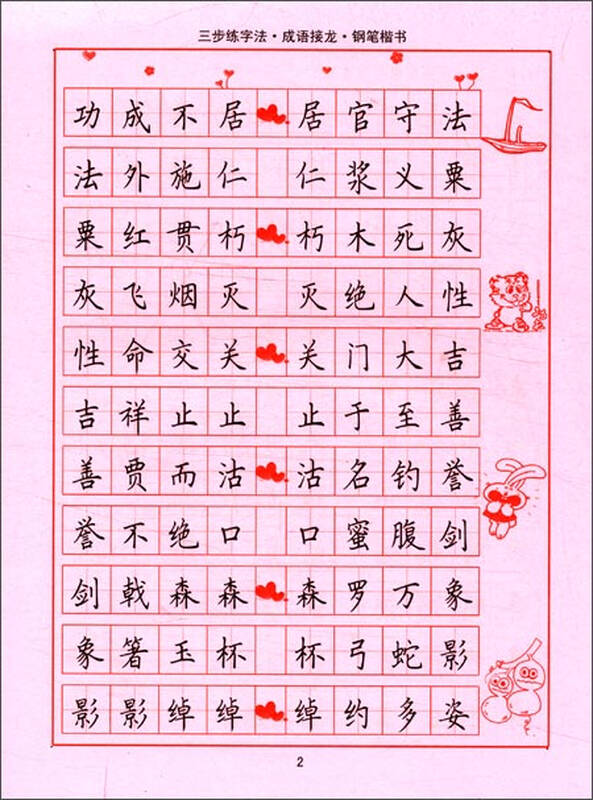 三步练字法·成语接龙·钢笔楷书
功成不居 居官守法
法外施仁 仁浆义粟
粟红贯朽 朽木死灰
灰飞烟灭 灭绝人性
性命交关 关门大吉
吉祥止止 止于至善
善贾而沽 沽名钓誉
誉不绝口 口蜜腹剑
剑戟森森 森罗万象
象箸玉杯 杯弓蛇影
影影绰绰 绰约多姿
2